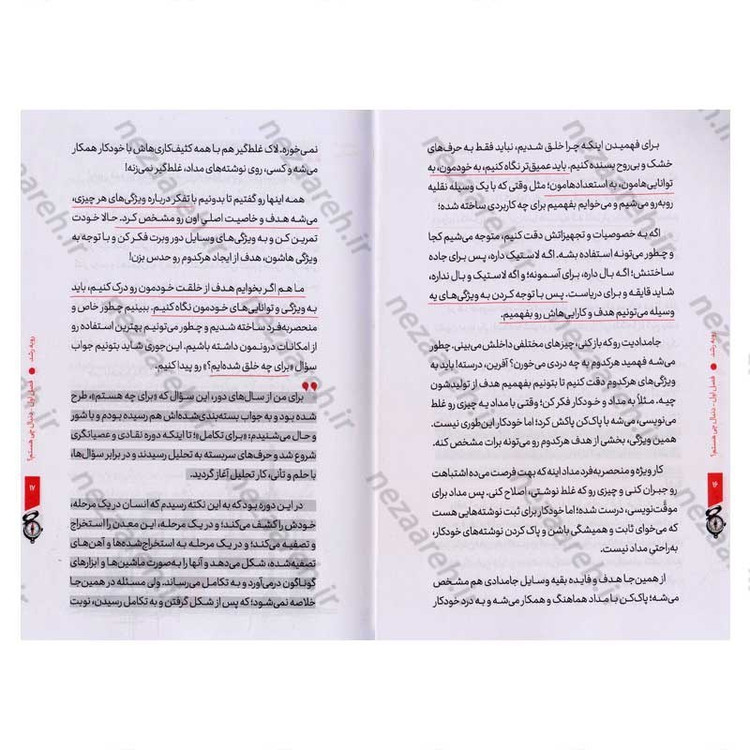 برای فهمیدن اینکه چرا خلق شدیم، نباید فقط به حرف‌های
خشک و بی‌روح بسنده کنیم. باید عمیق‌تر نگاه کنیم، به خودمون، به
توانایی‌هامون، به استعدادهامون؛ مثل وقتی که با یک وسیله نقلیه
روبه‌رو می‌شیم و می‌خوایم بفهمیم برای چه کاربردی ساخته شده؛
اگه به خصوصیات و تجهیزاتش دقت کنیم، متوجه می‌شیم کجا
و چطور می‌تونه استفاده بشه. اگه لاستیک داره، پس برای جاده
ساختنش؛ اگه بال داره، برای آسمونه؛ و اگه لاستیک و بال نداره،
شاید قایقه و برای دریاست. پس با توجه کردن به ویژگی‌های یه
وسیله می‌تونیم هدف و کارایی‌هاش رو بفهمیم.
جامدادیت رو که باز کنی، چیزهای مختلفی داخلش می‌بینی. چطور
می‌شه فهمید هرکدوم به چه دردی می‌خورن؟ آفرین، درسته! باید به
ویژگی‌های هرکدوم دقت کنیم تا بتونیم بفهمیم هدف از تولیدشون
چیه. مثلاً به مداد و خودکار فکر کن؛ وقتی با مداد یه چیزی رو غلط
می‌نویسی، می‌شه با پاک‌کن پاکش کرد؛ اما خودکار این‌طوری نیست.
همین ویژگی، بخشی از هدف هرکدوم رو می‌تونه برات مشخص کنه.
کار ویژه و منحصربه‌فرد مداد اینه که بهت فرصت می‌ده اشتباهت
رو جبران کنی و چیزی رو که غلط نوشتی، اصلاح کنی. پس مداد برای
موقّت‌نویسی، درست شده؛ اما خودکار برای ثبت نوشته‌هایی هست
که می‌خوای ثابت و همیشگی باشن و پاک کردن نوشته‌های خودکار،
به‌راحتی مداد نیست.
از همین‌جا هدف و فایده بقیه وسایل جامدادی هم مشخص
می‌شه؛ پاک‌کن با مداد هماهنگ و همکار می‌شه و به درد خودکار
روبه رشد
فصل اول - دنبال چی هستم؟
۱۶
نمی‌خوره. لاک غلط‌گیر هم با همه کثیف‌کاری‌هاش با خودکار همکار
می‌شه و کسی، روی نوشته‌های مداد، غلط‌گیر نمی‌زنه!
همه اینها رو گفتیم تا بدونیم با تفکر درباره ویژگی‌های هر چیزی،
می‌شه هدف و خاصیت اصلی اون رو مشخص کرد. حالا خودت
تمرین کن و به ویژگی‌های وسایل دور وبرت فکر کن و با توجه به
ویژگی هاشون، هدف از ایجاد هرکدوم رو حدس بزن!
ما هم اگر بخوایم هدف از خلقت خودمون رو درک کنیم، باید
به ویژگی و توانایی‌های خودمون نگاه کنیم. ببینیم چطور خاص و
منحصربه‌فرد ساخته شدیم و چطور می‌تونیم بهترین استفاده رو
از امکانات درونمون داشته باشیم. این‌جوری شاید بتونیم جواب
سؤال «برای چه خلق شده‌ایم؟» رو پیدا کنیم.
برای من از سال‌های دور، این سؤال که «برای چه هستم»، طرح
شده بود و به جواب بسته‌بندی‌شده‌اش هم رسیده بودم و با شور
و حال می‌شنیدم: «برای تکامل»؛ تا اینکه دوره نقادی و عصیانگری
شروع شد و حرف‌های سربسته به تحلیل رسیدند و در برابر سؤال‌ها،
با حلم و تأنی، کار تحلیل آغاز گردید.
در این دوره بود که به این نکته رسیدم که انسان در یک مرحله،
خودش را کشف می‌کند؛ و در یک مرحله، این معدن را استخراج
و تصفیه می‌کند؛ و در یک مرحله به استخراج‌شده‌ها و آهن‌های
تصفیه‌شده، شکل می‌دهد و آنها را به‌صورت ماشین‌ها و ابزارهای
گوناگون درمی‌آورد و به تکامل می‌رساند. ولی مسئله در همین‌جا
خلاصه نمی‌شود؛ که پس از شکل گرفتن و به تکامل رسیدن، نوبت
روبه رشد
فصل اول - دنبال چی هستم؟
۱۷
nezaareh.ir